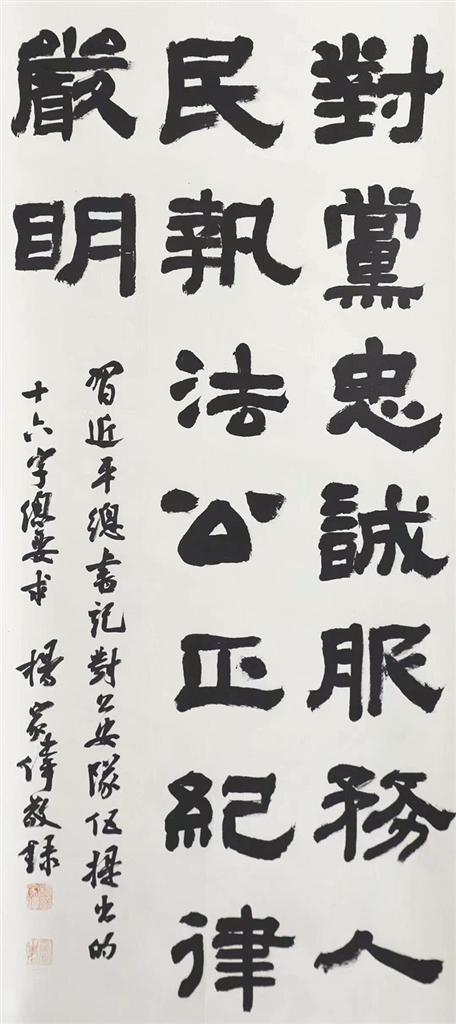 對黨忠誠服務人
民執法公正紀律
嚴明
習近平總書記對公安隊伍提出的
十六字總要求 楊家偉敬錄